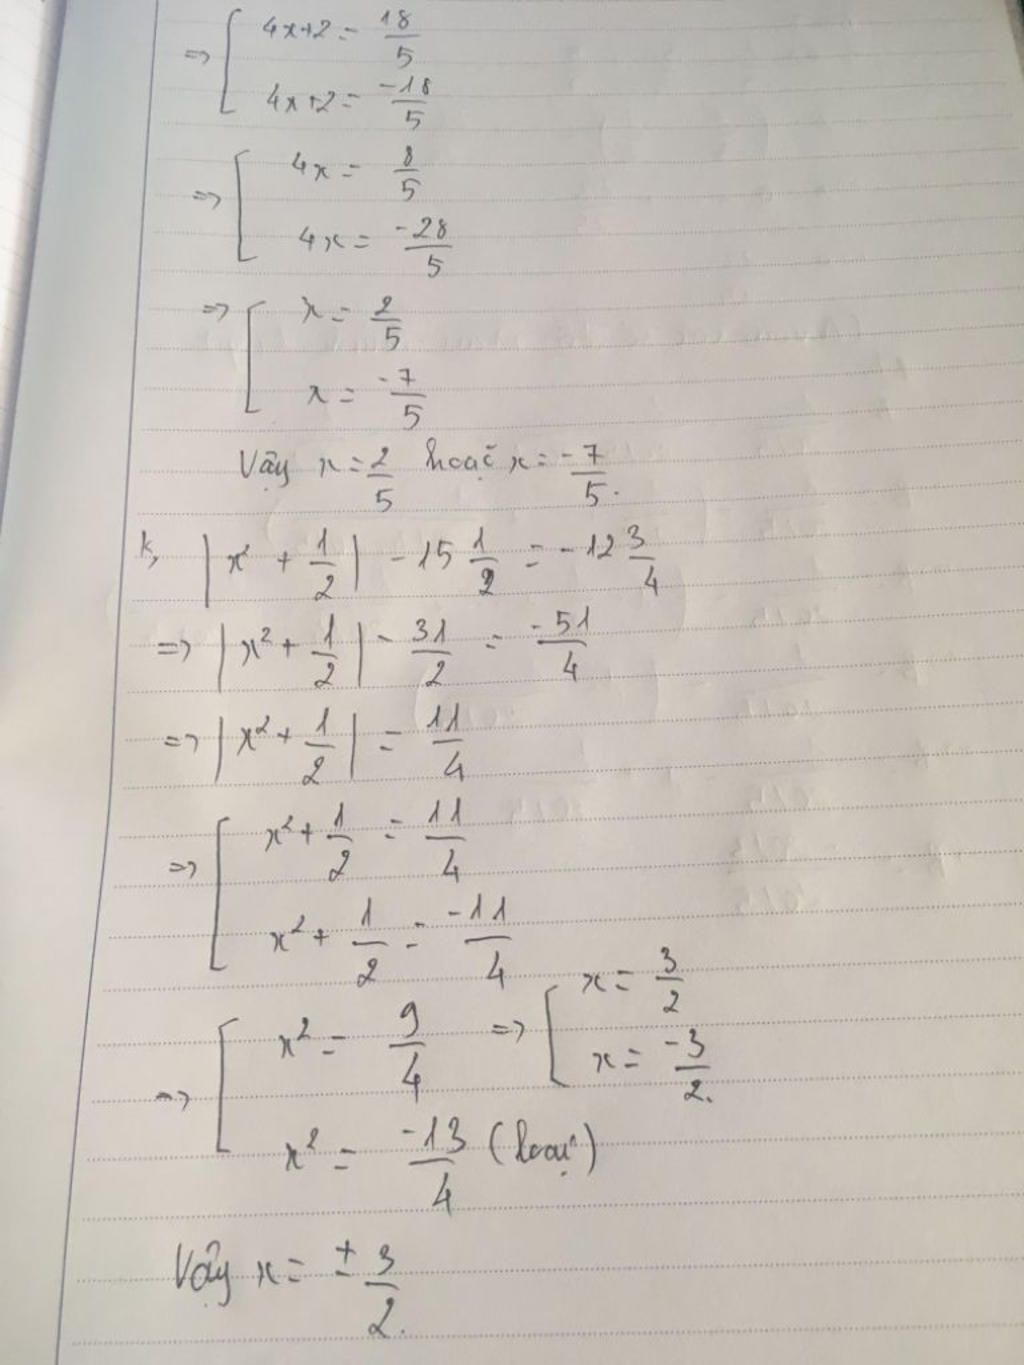 => [ 4x+2 = 18/5
4x+2 = -18/5
=> [ 4x = 8/5
4x = -28/5
=> [ x = 2/5
x = -7/5
Vậy x = 2/5 hoặc x = -7/5.
k, |x² + 1/2| - 15 1/2 = -12 3/4
=> |x² + 1/2| - 31/2 = -51/4
=> |x² + 1/2| = 11/4
=> [ x² + 1/2 = 11/4
x² + 1/2 = -11/4
=> [ x² = 9/4 => [ x = 3/2
x = -3/2.
x² = -13/4 (loại)
Vậy x = ± 3/2.